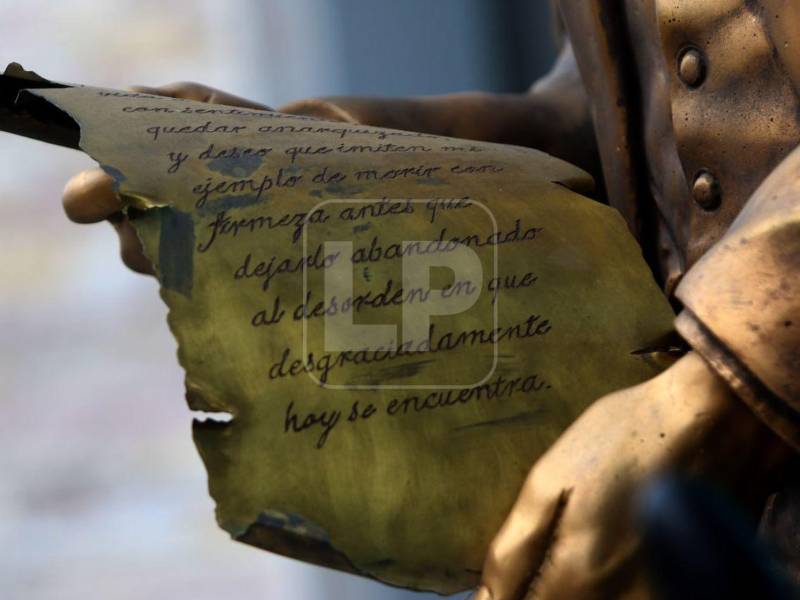 con sentimi
quedar anarquizado
y deseo que imiten mi
ejemplo de morir con
firmeza antes que
dejarlo abandonado
al desorden en que
desgraciadamente
hoy se encuentra.
LP